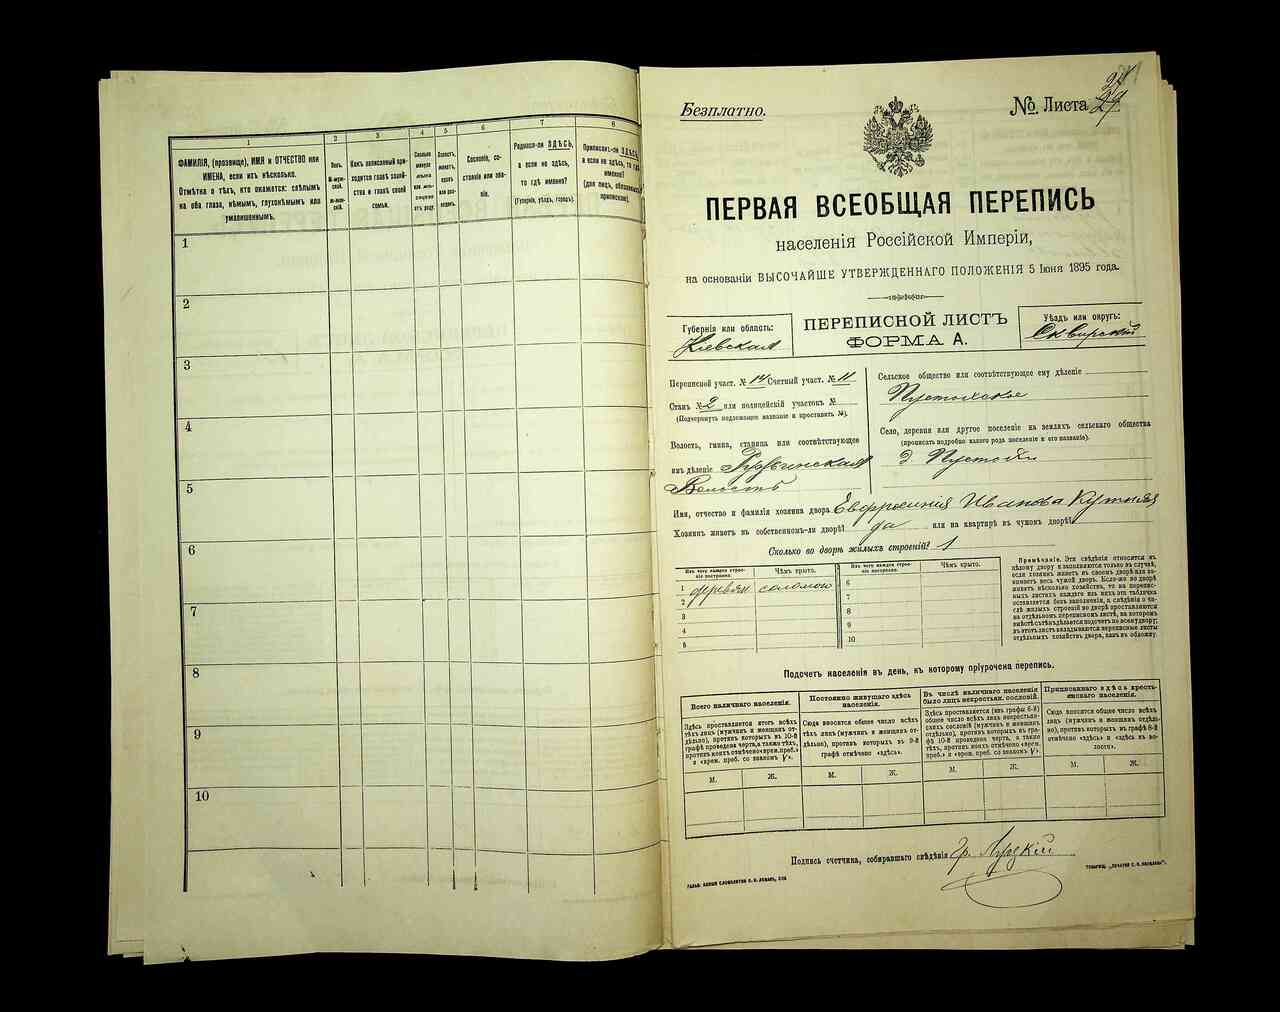 1
2
3
4
5
6
7
8
ФАМИЛІЯ, (прозвище), ИМЯ и ОТЧЕСТВО или
ИМЕНА, если ихъ нѣсколько.
Отмѣтка о тѣхъ, кто окажется: слѣпымъ
на оба глаза, нѣмымъ, глухонѣмымъ или
умалишеннымъ.
Полъ.
Какъ записанный при-
ходится главѣ хозяй-
ства и главѣ своей
семьи.
Сколько
минуло
лѣтъ
или мѣ-
сяцевъ
отъ роду.
Сословіе, со-
стояніе или зва-
ніе.
Родился-ли ЗДѢСЬ,
а если не здѣсь,
то гдѣ именно?
(Губернія, уѣздъ, городъ).
Приписанъ-ли ЗДѢСЬ,
а если не здѣсь, то гдѣ
именно?
(для лицъ, обязанныхъ
припискою).
1
2
3
4
5
6
7
8
9
10
Безплатно.
№ Листа 29
ПЕРВАЯ ВСЕОБЩАЯ ПЕРЕПИСЬ
населенія Россійской Имперіи,
на основаніи ВЫСОЧАЙШЕ УТВЕРЖДЕННАГО ПОЛОЖЕНІЯ 5 Іюня 1895 года.
Губернія или область:
Кіевская
ПЕРЕПИСНОЙ ЛИСТЪ
ФОРМА А.
Уѣздъ или округъ:
Сквирскій
Переписной участ. № 14 Счетный участ. № 11
Станъ № 2 или полицейскій участокъ №
(Подчеркнуть надлежащее названіе и проставить №).
Волость, гмина, станица или соотвѣтствующее
имъ дѣленіе
Волость
Сельское общество или соотвѣтствующее ему дѣленіе
Село, деревня или другое поселеніе на земляхъ сельскаго общества
(прописать подробно какого рода поселеніе и его названіе).
Имя, отчество и фамилія хозяина двора Евфросинія Иванова
Хозяинъ живетъ въ собственномъ-ли дворѣ? да или на квартирѣ въ чужомъ дворѣ?
Сколько во дворѣ жилыхъ строеній? 1
Изъ чего каждое строе-
ніе построено.
Чѣмъ крыто.
Изъ чего каждое строе-
ніе построено.
Чѣмъ крыто.
1 деревян соломою
2
3
4
5
6
7
8
9
10
Примѣчаніе. Эти свѣдѣнія относятся къ
цѣлому двору и заполняются только въ случаѣ,
если хозяинъ живетъ въ своемъ дворѣ или за-
нимаетъ весь чужой дворъ. Если-же во дворѣ
живетъ нѣсколько хозяйствъ, то на перепис-
ныхъ листахъ каждаго изъ нихъ эта табличка
оставляется безъ заполненія, а свѣдѣнія о чи-
слѣ жилыхъ строеній во дворѣ проставляются
на отдѣльномъ переписномъ листѣ, на которомъ
вмѣстѣ съ тѣмъ дѣлается подсчетъ по всему двору;
въ этотъ листъ вкладываются переписные листы
отдѣльныхъ хозяйствъ двора, какъ въ обложку.
Подсчетъ населенія въ день, къ которому пріурочена перепись.
Всего наличнаго населенія.
Постоянно живущаго здѣсь
населенія.
Въ числѣ наличнаго населенія
было лицъ некрестьян. сословій.
Приписаннаго здѣсь кресть-
янскаго населенія.
Здѣсь проставляется итогъ всѣхъ
тѣхъ лицъ (мужчинъ и женщинъ от-
дѣльно), противъ которыхъ въ 10-й
графѣ проведена черта, а также тѣхъ,
противъ коихъ отмѣчено «врем. преб.»
и «врем. преб. со знакомъ V».
Сюда вносится общее число всѣхъ
тѣхъ лицъ (мужчинъ и женщинъ от-
дѣльно), противъ которыхъ въ 9-й
графѣ отмѣчено «здѣсь».
Здѣсь проставляется (изъ графы 6-й)
общее число всѣхъ лицъ некрестьян-
скихъ сословій (мужчинъ и женщинъ
отдѣльно), противъ которыхъ въ гра-
фѣ 10-й проведена черта, а также
тѣхъ, противъ коихъ отмѣчено «врем.
преб.» и «врем. преб. со знакомъ V».
Сюда вносится общее число всѣхъ
лицъ (мужчинъ и женщинъ отдѣль-
но), противъ которыхъ въ графѣ 8-й
отмѣчено «здѣсь» и «здѣсь въ во-
лости».
М. Ж. М. Ж. М. Ж. М. Ж.
Подпись счетчика, собиравшаго свѣдѣнія